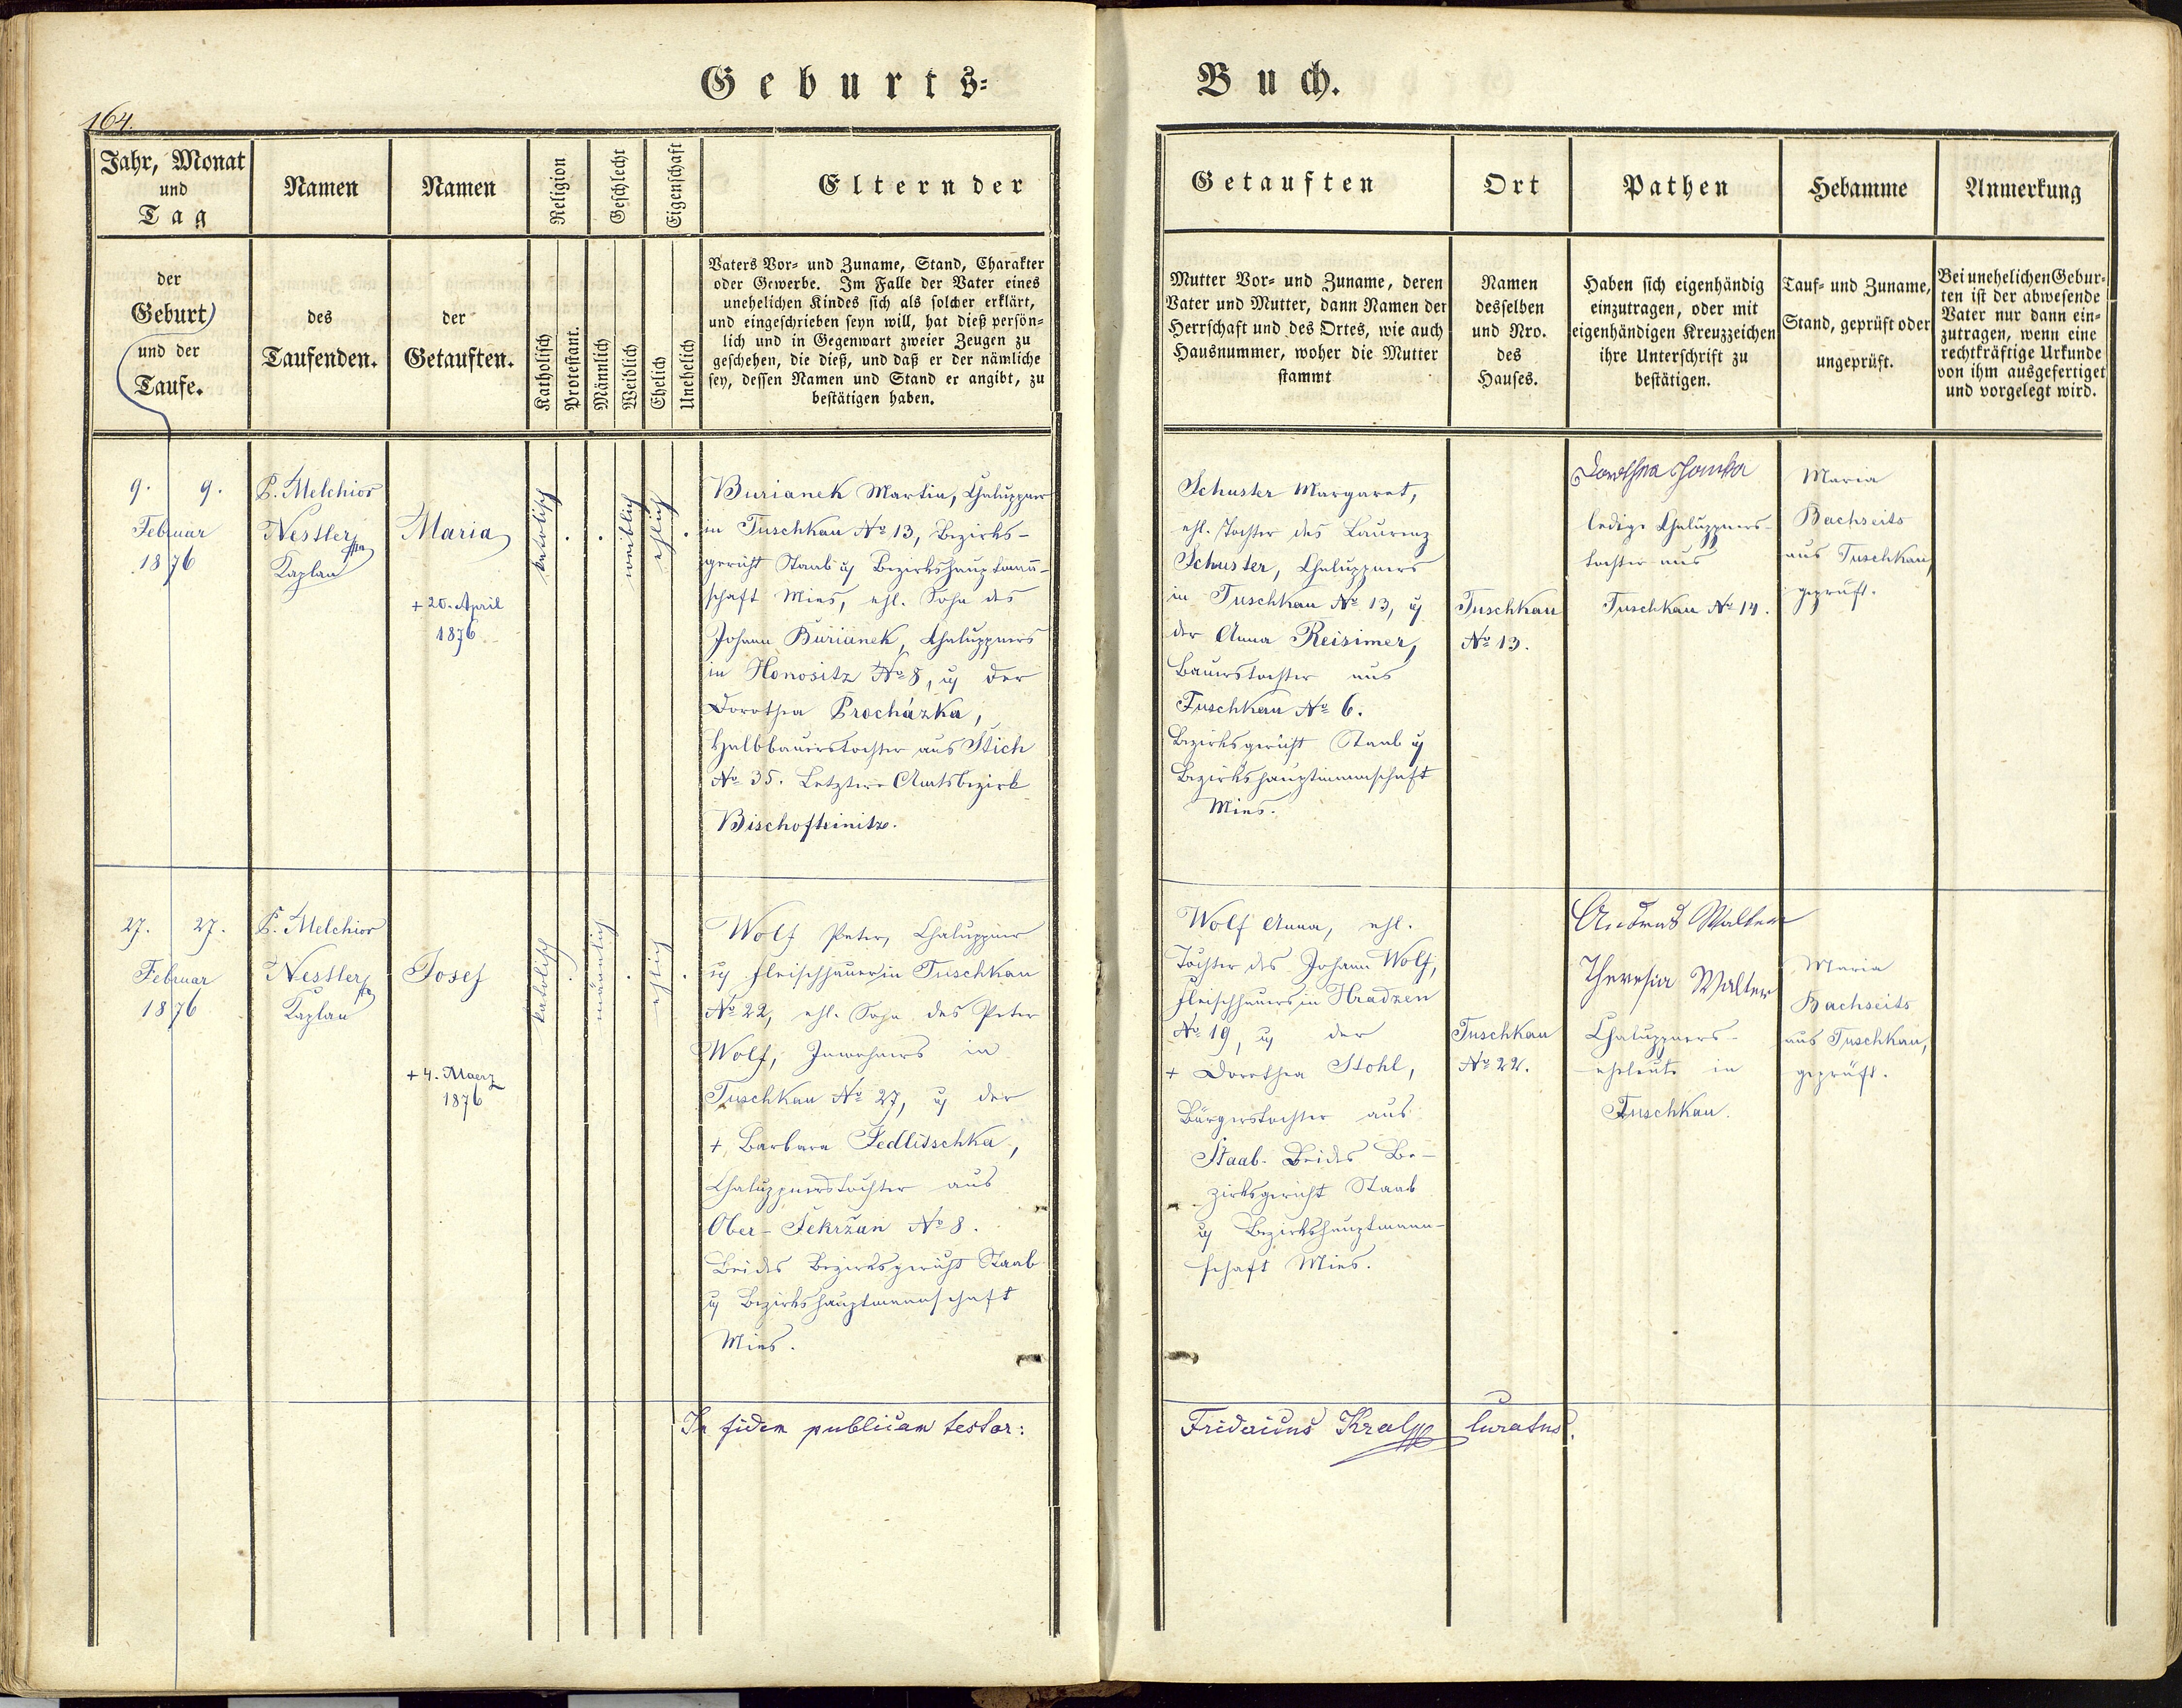 Geburts-
Buch.
164.
Jahr, Monat
und
Tag
der
Geburt
und der
Taufe.
Namen
des
Taufenden.
Namen
der
Getauften.
Religion
Katholisch
Protestant.
Geschlecht
Männlich
Weiblich
Eigenschaft
Ehelich
Unehelich
Eltern der
Vaters Vor- und Zuname, Stand, Charakter
oder Gewerbe. Im Falle der Vater eines
unehelichen Kindes sich als solcher erklärt,
und eingeschrieben seyn will, hat dieß persön-
lich und in Gegenwart zweier Zeugen zu
geschehen, die dieß, und daß er der nämliche
sey, dessen Namen und Stand er angibt, zu
bestätigen haben.
Getauften
Mutter Vor- und Zuname, deren
Vater und Mutter, dann Namen der
Herrschaft und des Ortes, wie auch
Hausnummer, woher die Mutter
stammt
Ort
Namen
desselben
und Nro.
des
Hauses.
Pathen
Haben sich eigenhändig
einzutragen, oder mit
eigenhändigen Kreuzzeichen
ihre Unterschrift zu
bestätigen.
Hebamme
Tauf- und Zuname,
Stand, geprüft oder
ungeprüft.
Anmerkung
Bei unehelichen Gebur-
ten ist der abwesende
Vater nur dann ein-
zutragen, wenn eine
rechtkräftige Urkunde
von ihm ausgefertiget
und vorgelegt wird.
9. 9.
Februar
1876
P. Melchior
Nestler
Kaplan
Maria
+ 20. April
1876
katolisch
weiblich
ehlich
Burianek Martin, Chaluppner
in Tuschkau No 13, Bezirks-
gericht Staab u Bezirkshauptmann-
schaft Mies, ehl. Sohn des
Johann Burianek, Chaluppners
in Honositz No 8, u der
Dorothea Procházka,
Halbbauerstochter aus Stich
No 35. Letztere Amtsbezirk
Bischofteinitz.
Schuster Margaret,
ehl. Tochter des Laurenz
Schuster, Chaluppners
in Tuschkau No 13, u
der Anna Reisimer,
Bauerstochter aus
Tuschkau No 6.
Bezirksgericht Staab u
Bezirkshauptmannschaft
Mies.
Tuschkau
No 13.
Dorothea
ledige Chaluppners-
tochter aus
Tuschkau No 14.
Maria
Bachseits
aus Tuschkau,
geprüft.
27. 27.
Februar
1876
P. Melchior
Nestler
Kaplan
Josef
+ 4. Maerz
1876
katolisch
männlich
ehlich
Wolf Peter, Chaluppner
u Fleischhauer in Tuschkau
No 22, ehl. Sohn des Peter
Wolf, Inwohners in
Tuschkau No 27, u der
+ Barbara Sedlitschka,
Chaluppnerstochter aus
Ober-Sekržan No 8.
Beides Bezirksgericht Staab
u Bezirkshauptmannschaft
Mies.
Wolf Anna, ehl.
Tochter des Johann Wolf,
Fleischhauers in Hradzen
No 19, u der
+ Dorothea Stohl,
Bürgerstochter aus
Staab. Beides Be-
zirksgericht Staab
u Bezirkshauptmann-
schaft Mies.
Tuschkau
No 22.
Andreas Walter
Theresia Walter
Chaluppners-
eheleute in
Tuschkau.
Maria
Bachseits
aus Tuschkau,
geprüft.
In fidem publicam testor:
Fridericus Kral Curatus.